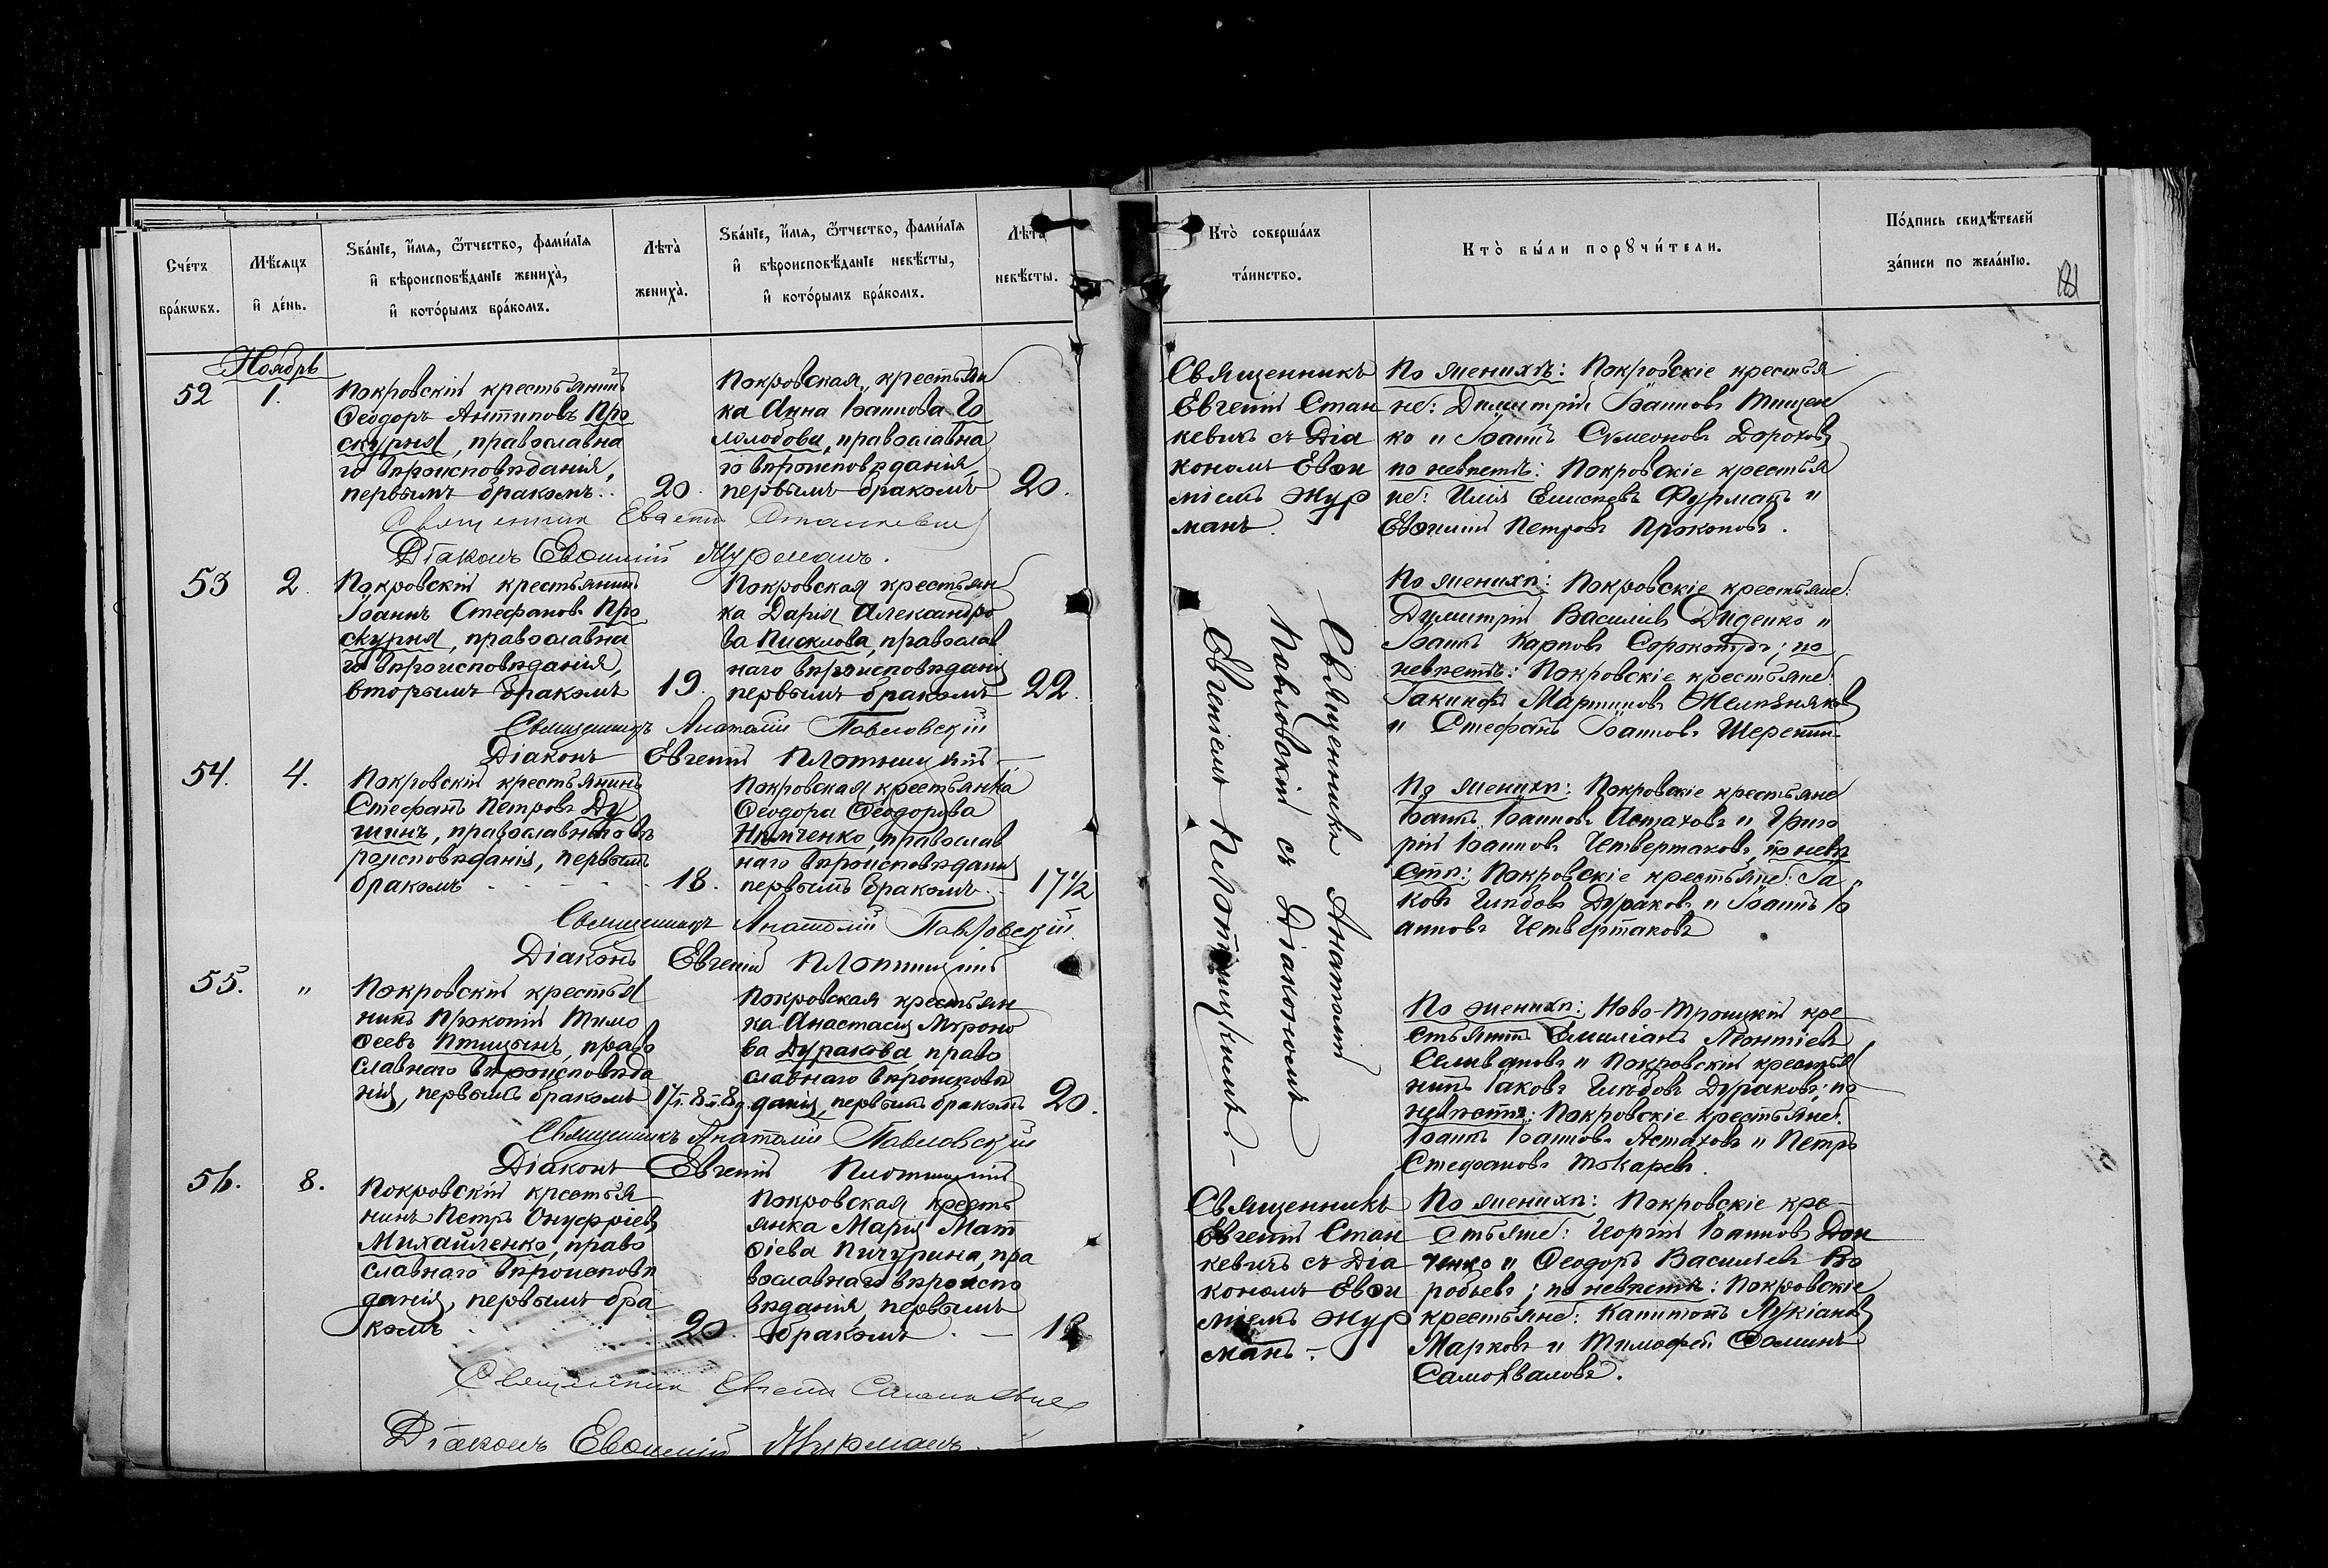 Счéтъ
брáкωвъ.
Мѣ́сяцъ
и҆ дéнь.
Ѕвáнїе, и҆́мѧ, ѻ҆́тчество, фамíлїѧ
и҆ вѣроисповѣ́данїе жениха̀,
и҆ котóрымъ брáкомъ.
Лѣта̀
жениха̀.
Ѕвáнїе, и҆́мѧ, ѻ҆́тчество, фамíлїѧ
и҆ вѣроисповѣ́данїе невѣ́сты,
и҆ котóрымъ брáкомъ.
Лѣта̀
невѣ́сты.
Кто̀ совершáлъ
тáинство.
Кто̀ бы́ли порꙋчи́тели.
Пóдпись свидѣ́телей
зáписи по желáнїю.
181
Ноябрь
52
1.
Покровскій крестьянинъ
Ѳеодоръ Антиповъ Про
скурня, православна
го вѣроисповѣданія,
первымъ бракомъ.
20.
Покровская крестьян
ка Анна Іоаннова Го
лолобова, православна
го вѣроисповѣданія,
первымъ бракомъ
20.
Священникъ
Евгеній Стан
кевичъ съ Діа
кономъ Евѳи
міемъ Жур
манъ.
По женихѣ: Покровскіе крестья
не: Димитрій Іоанновъ Тищен
ко и Іоаннъ Сѵмеоновъ Дороховъ
по невѣстѣ: Покровскіе крестья
не: Илія Елисѣевъ Фурманъ и
Евѳимій Петровъ Прокоповъ.
Священникъ Евгеній Станкевичъ
Діаконъ Евѳимій Журманъ.
53
2.
Покровскій крестьянинъ
Іоаннъ Стефановъ Про
скурня, православна
го вѣроисповѣданія,
вторымъ бракомъ
19.
Покровская крестьян
ка Дарія Александро
ва Пискилова, православ
наго вѣроисповѣданія
первымъ бракомъ
22.
Священникъ Анатолій
Павловскій съ Діакономъ
Евгеніемъ Плотницкимъ.
По женихѣ: Покровскіе крестьяне:
Димитрій Василіевъ Диденко и
Іоаннъ Карповъ Сорокотяга; по
невѣстѣ: Покровскіе крестьяне:
Іакинфъ Мартиновъ Желѣзняковъ
и Стефанъ Іоанновъ
Священникъ Анатолій Павловскій
Діаконъ Евгеній Плотницкій
54.
4.
Покровскій крестьянинъ
Стефанъ Петровъ Ду
шинъ, православнаго вѣ
роисповѣданія, первымъ
бракомъ
18.
Покровская крестьянка
Ѳеодора Ѳеодорова
Нимченко, православ
наго вѣроисповѣданія
первымъ бракомъ
17 1/2
По женихѣ: Покровскіе крестьяне
Іоаннъ Іоанновъ Астаховъ и Григо
рій Іоанновъ Четвертаковъ, по невѣ
стѣ: Покровскіе крестьяне: Іа
ковъ Глѣбовъ Дураковъ и Іоаннъ Іо
анновъ Четвертаковъ
Священникъ Анатолій Павловскій.
Діаконъ Евгеній Плотницкій
55.
"
Покровскій крестья
нинъ Прокопій Тимо
ѳеевъ Птицынъ, право
славнаго вѣроисповѣда
нія, первымъ бракомъ
17л. 8м. 8д.
Покровская крестьян
ка Анастасія Мироно
ва Дуракова, право
славнаго вѣроисповѣ
данія, первымъ бракомъ
20.
По женихѣ: Ново-Троицкій кре
стьянинъ Емиліанъ Леонтіевъ
Селивановъ и Покровскій крестья
нинъ Іаковъ Глѣбовъ Дураковъ; по
невѣстѣ: Покровскіе крестьяне:
Іоаннъ Іоанновъ Астаховъ и Петръ
Стефановъ Токаревъ.
Священникъ Анатолій Павловскій
Діаконъ Евгеній Плотницкій
56.
8.
Покровскій крестья
нинъ Петръ Онуфріевъ
Михайленко, право
славнаго вѣроисповѣ
данія, первымъ бра
комъ
20.
Покровская кресть
янка Марія Мат
ѳіева Пичурина, пра
вославнаго вѣроиспо
вѣданія, первымъ
бракомъ
Священникъ
Евгеній Стан
кевичъ съ Діа
кономъ Евѳи
міемъ Жур
манъ.
По женихѣ: Покровскіе кре
стьяне: Георгій Іоанновъ Дон
ченко и Ѳеодоръ Василіевъ Во
робьевъ; по невѣстѣ: Покровскіе
крестьяне: Капитонъ Лукіановъ
Марковъ и Тимофей Ѳоминъ
Самохваловъ.
Священникъ Евгеній Станкевичъ
Діаконъ Евѳимій Журманъ.